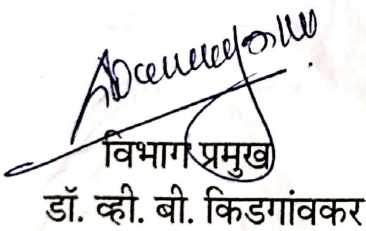 विभाग प्रमुख
डॉ. व्ही. बी. किडगांवकर